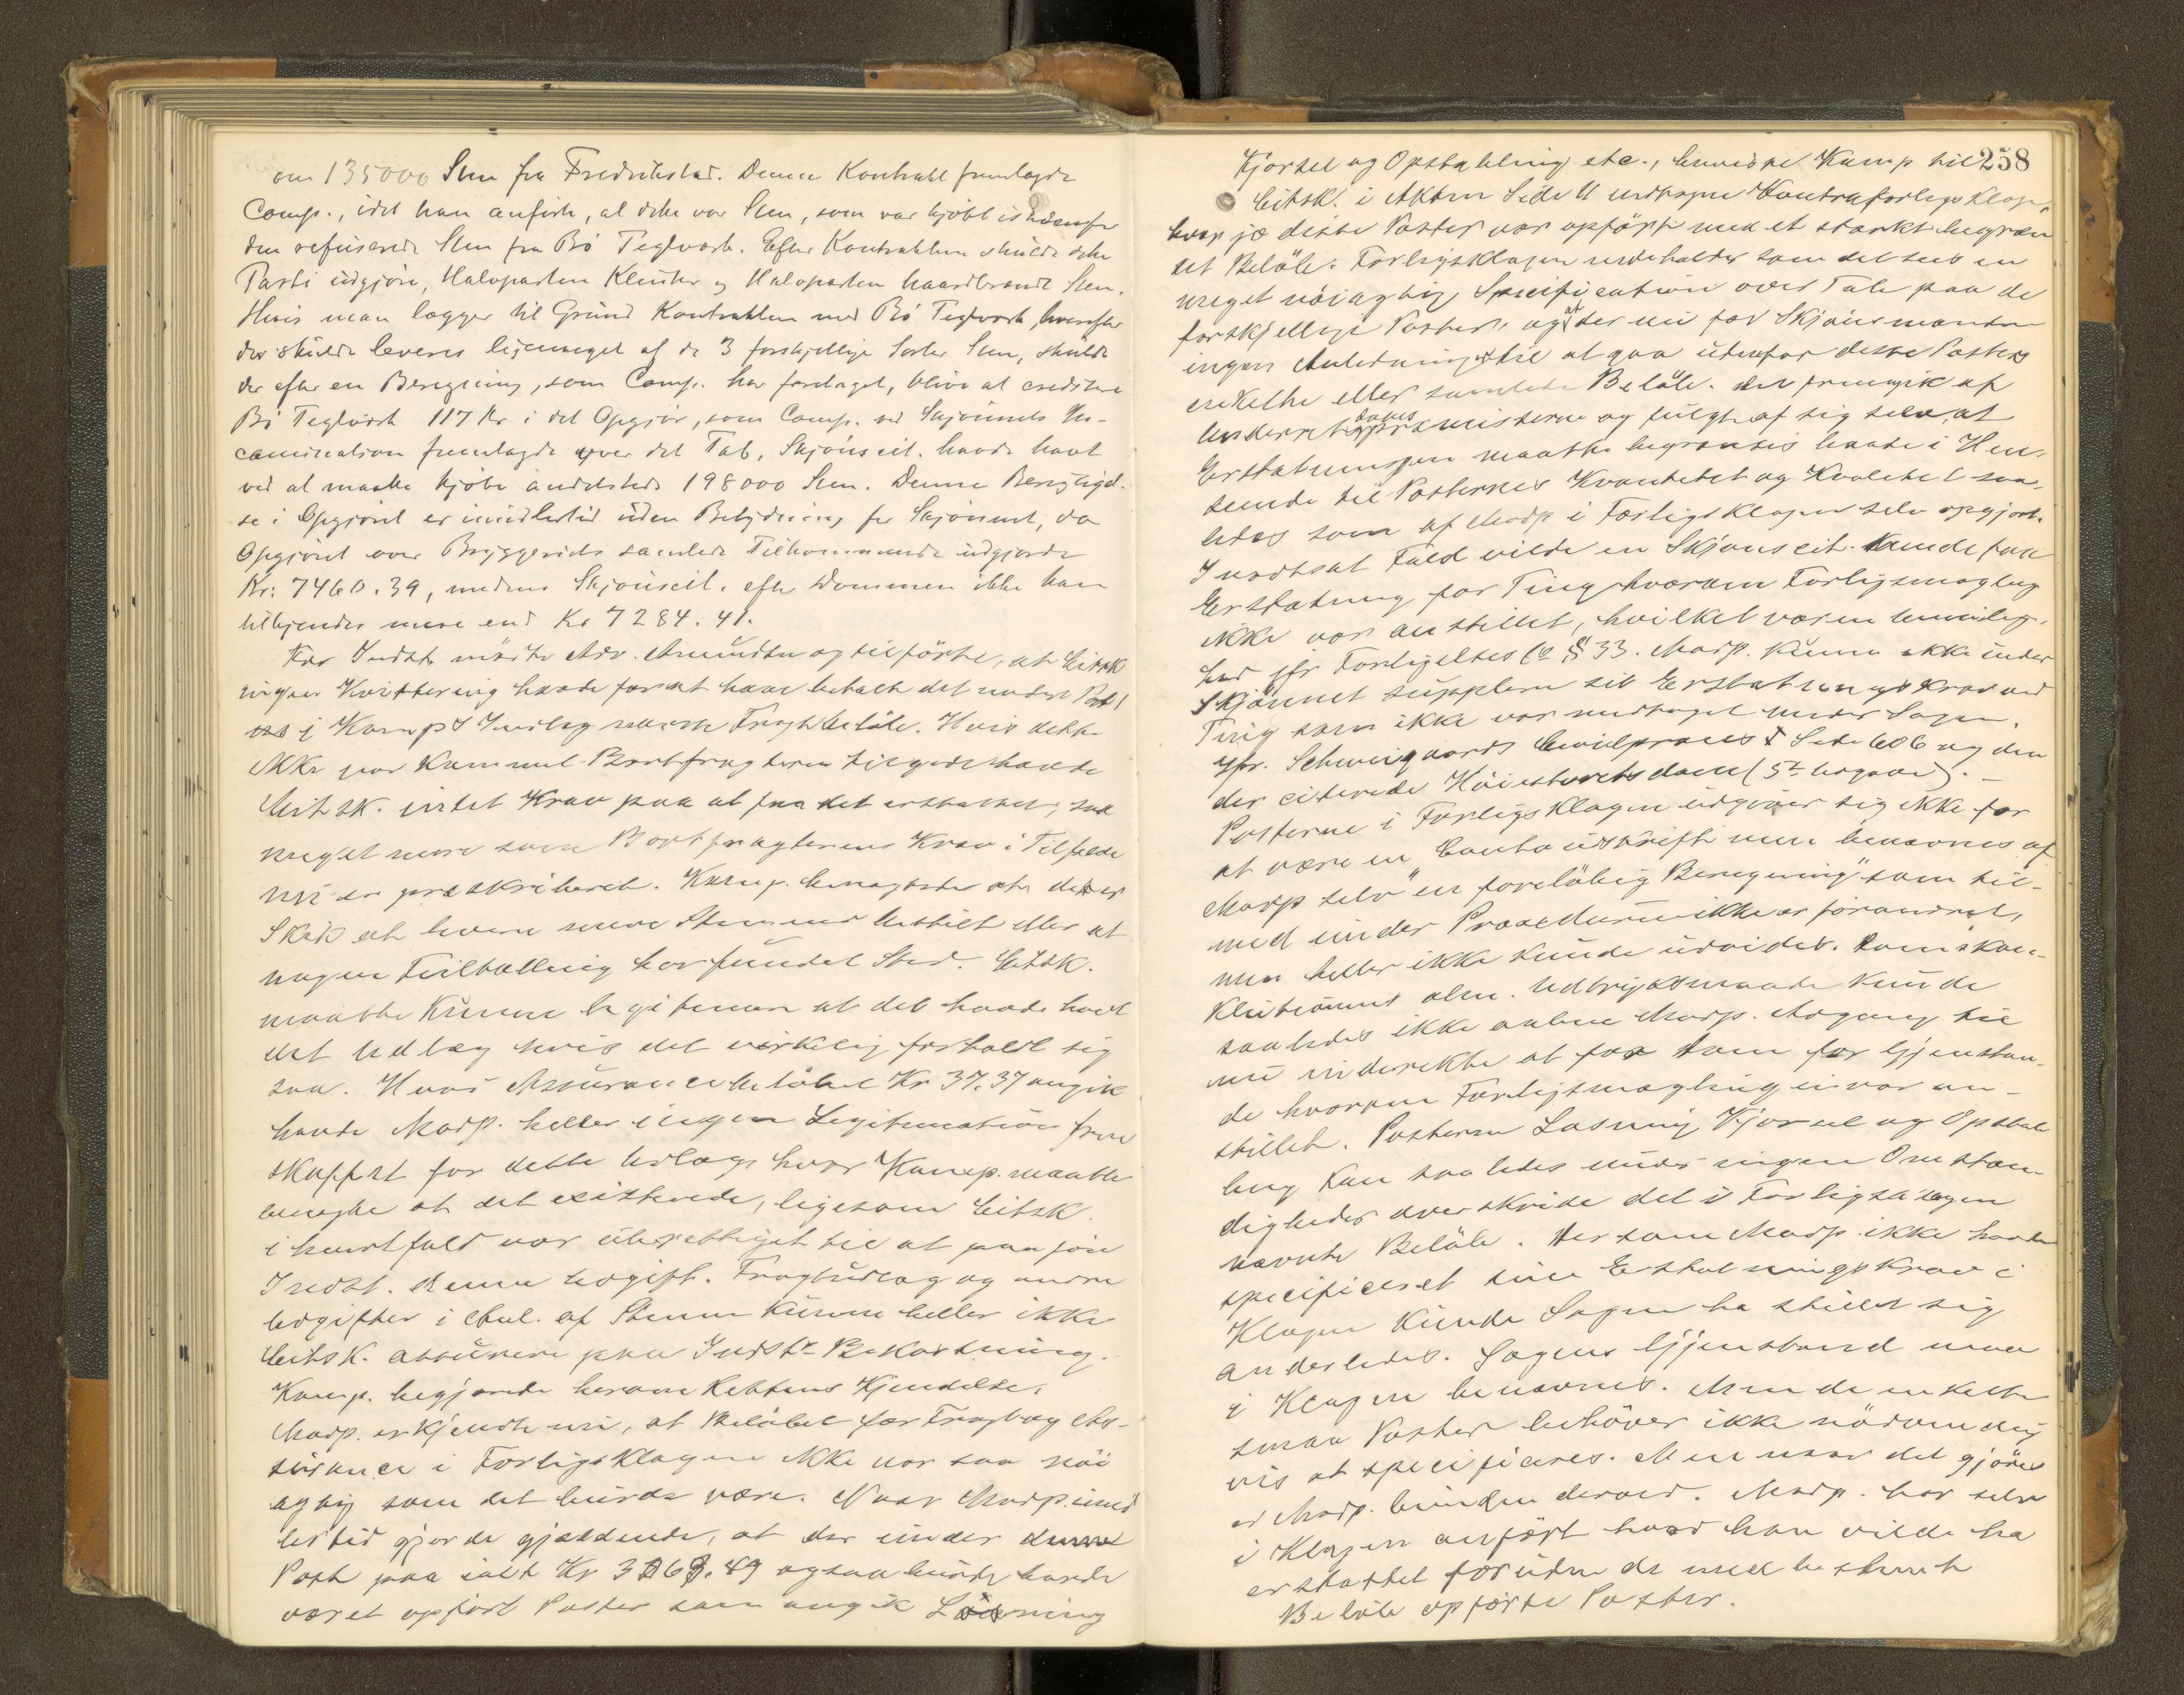 om 135000 Sten fra Fredrikstad. Denne Kontrakt fremlagde
Comp., idet han anførte, at dette var Sten, som var kjøbt istedenfor
den refuserede Sten fra Bö Teglverk. Efter Kontrakten skulde dette
Parti udgjøre, Halvparten Klinker og Halvparten haardbrændt Sten.
Hvis man lægger til Grund Kontrakten med Bö Teglverk, hvorefter
der skulde leveres ligemeget af de 3 forskjellige Sorter Sten, skulde
der efter en Beregning, som Comp. har foretaget, blive at creditere
Bö Teglverk 117 Kr i det Opgjör, som Comp. ved Skjönnets In-
camination fremlagde over det Tab, Skjönscit. havde havt
ved at maatte kjöbe andetsteds 198000 Sten. Denne Berigtigel-
se i Opgjöret er imidlertid uden Betydning for Skjönnet, da
Opgjöret over Bryggeriets samlede Tilkommende udgjorde
Kr: 7460.39, medens Skjönscit. efter Dommen ikke kan
tilkjendes mere end Kr 7284.41.
For Indst. mödte Adv. Amundsen og tilförte, at Citsk
ingen Kvittering havde for at have betalt det under Post 1
i Kamps Indlæg nævnte Fragtbelöb. Hvis dette
ikke var kommet Bortfragteren tilgode havde
Citsk. intet Krav paa at faa det erstattet, saa
meget mere som Bortfragterens Krav i Tilfælde
nu er præskriberet. Kamp. benægtede at det er
Skik at levere mere Sten end bestilt eller at
nogen Feiltælling har fundet Sted. Citsk.
maatte kunne legitimere at det havde havt
det Udlæg hvis det virkelig forholdt sig
saa. Hvad Assurancebelöbet Kr 37.37 angik
havde Modp. heller ingen Legitimation frem
skaffet for dette Udlæg hvor Kamp. maatte
benægte at det existerede, ligesom Citsk.
i hvertfald var uberettiget til at paaföre
Indst. denne Udgift. Fragtudlæg og andre
Udgifter i Anl. af Stenen kunne heller ikke
Citsk. assurere paa Indsts Bekostning.
Kamp. begjærede herom Rettens Kjendelse.
Modp. erkjendte nu, at Belöbet for Fragt og As-
surance i Forligsklagen ikke var saa nöi
agtig som det burde være. Naar Modp. imid
lertid gjorde gjældende, at der under denne
Post paa ialt Kr 3169.49 ogsaa burde havde
været opfört Poster som angik Losning
258
Kjörsel og Opstabling etc., henviste Kamp til
Citsk! i Akten Side 11 indtagne Kontraforligsklage,
hvor jo disse Poster var opfört med et stærkt begræn
set Belöb. Forligsklagen indeholder som det sees en
meget nöiagtig Specification over Tab paa de
forskjellige Poster, og at der nu for Skjönsmændene
ingen Anledning er til at gaa udenfor disse Posters
enkelte eller samlede Belöb. Det fremgik af
Underretsdommens præmisserne og fulgte af sig selv, at
Erstatningen maatte begrænses baade i Hen-
seende til Posternes Kvantitet og Kvalitet saa-
ledes som af Modp i Forligsklagen selv opgjort.
I modsat Fald vilde en Skjönscit. kunde faa
Erstatning for Ting hvorom Forligsmægling
ikke var anstillet, hvilket var en umulig-
hed jfr Forligelses Lo § 33. Modp. kunne ikke under
Skjönnet supplere sit Erstatningskrav med
Ting som ikke var medtaget under Sagen.
jfr. Schweigaards Civilproces I Side 606 og den
der citerede Höiesteretsdom (5te Udgave). -
Posterne i Forligsklagen udgiver sig ikke for
at være en Contoudskrift men benævnes af
Modp selv "en forelöbig Beregning" som til-
med under Proceduren ikke er forandret,
men heller ikke kunde udvides. Domskon-
klusionens alm. Udtryksmaade kunde
saaledes ikke aabne Modp. Adgang til
nu indirekte at faa Dom for Gjenstan-
de hvorom Forligsmægling ei var an-
stillet. Posterne Losning Kjörsel og Opstab
ling kan saaledes under ingen Omstæn-
digheder overskride det i Forligsklagen
nævnte Belöb. Dersom Modp. ikke havde
specificeret sine Erstatningskrav i
Klagen kunde Sagen ha stillet sig
anderledes. Sagens Gjenstand maa
i Klagen benævnes. Men de enkelte
smaa Poster behöver ikke nödvendig
vis at specificeres. Men naar det gjöres
er Modp. bunden derved. Modp. har selv
i Klagen anfört hvad han vilde ha
erstattet foruden de med bestemte
Belöb opförte Poster.